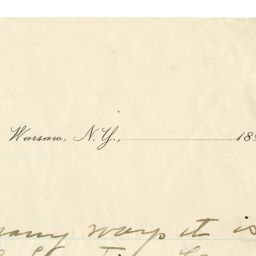 Warsaw, N.Y., 18
many ways it is